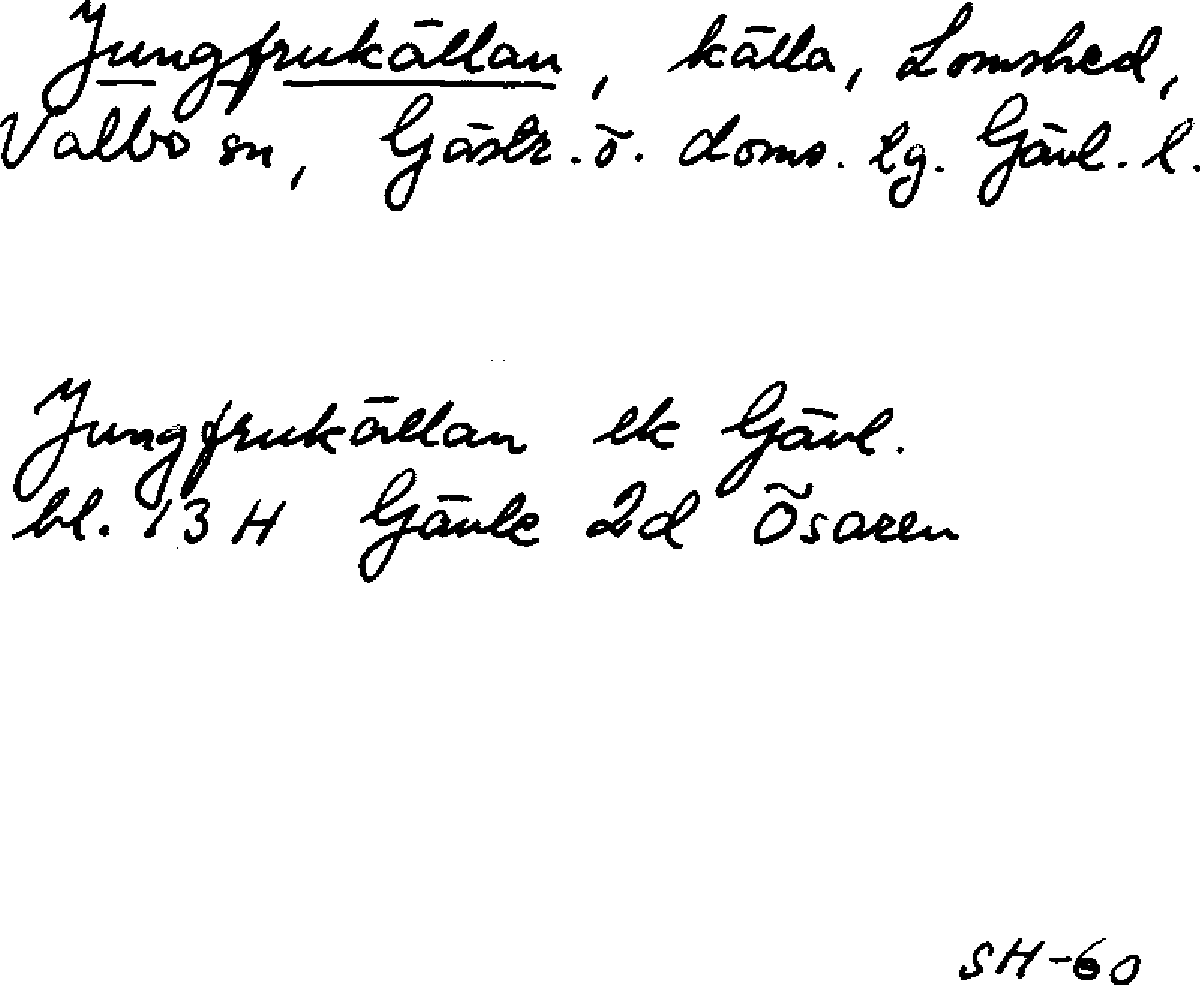 Jungfrukällan, källa, Lomshed,
Valbo sn, Gästr. ö. doms. lg. Gävl. l.
Jungfrukällan ek Gävl.
bl. 13 H Gävle 2d Ösaren
SH-60